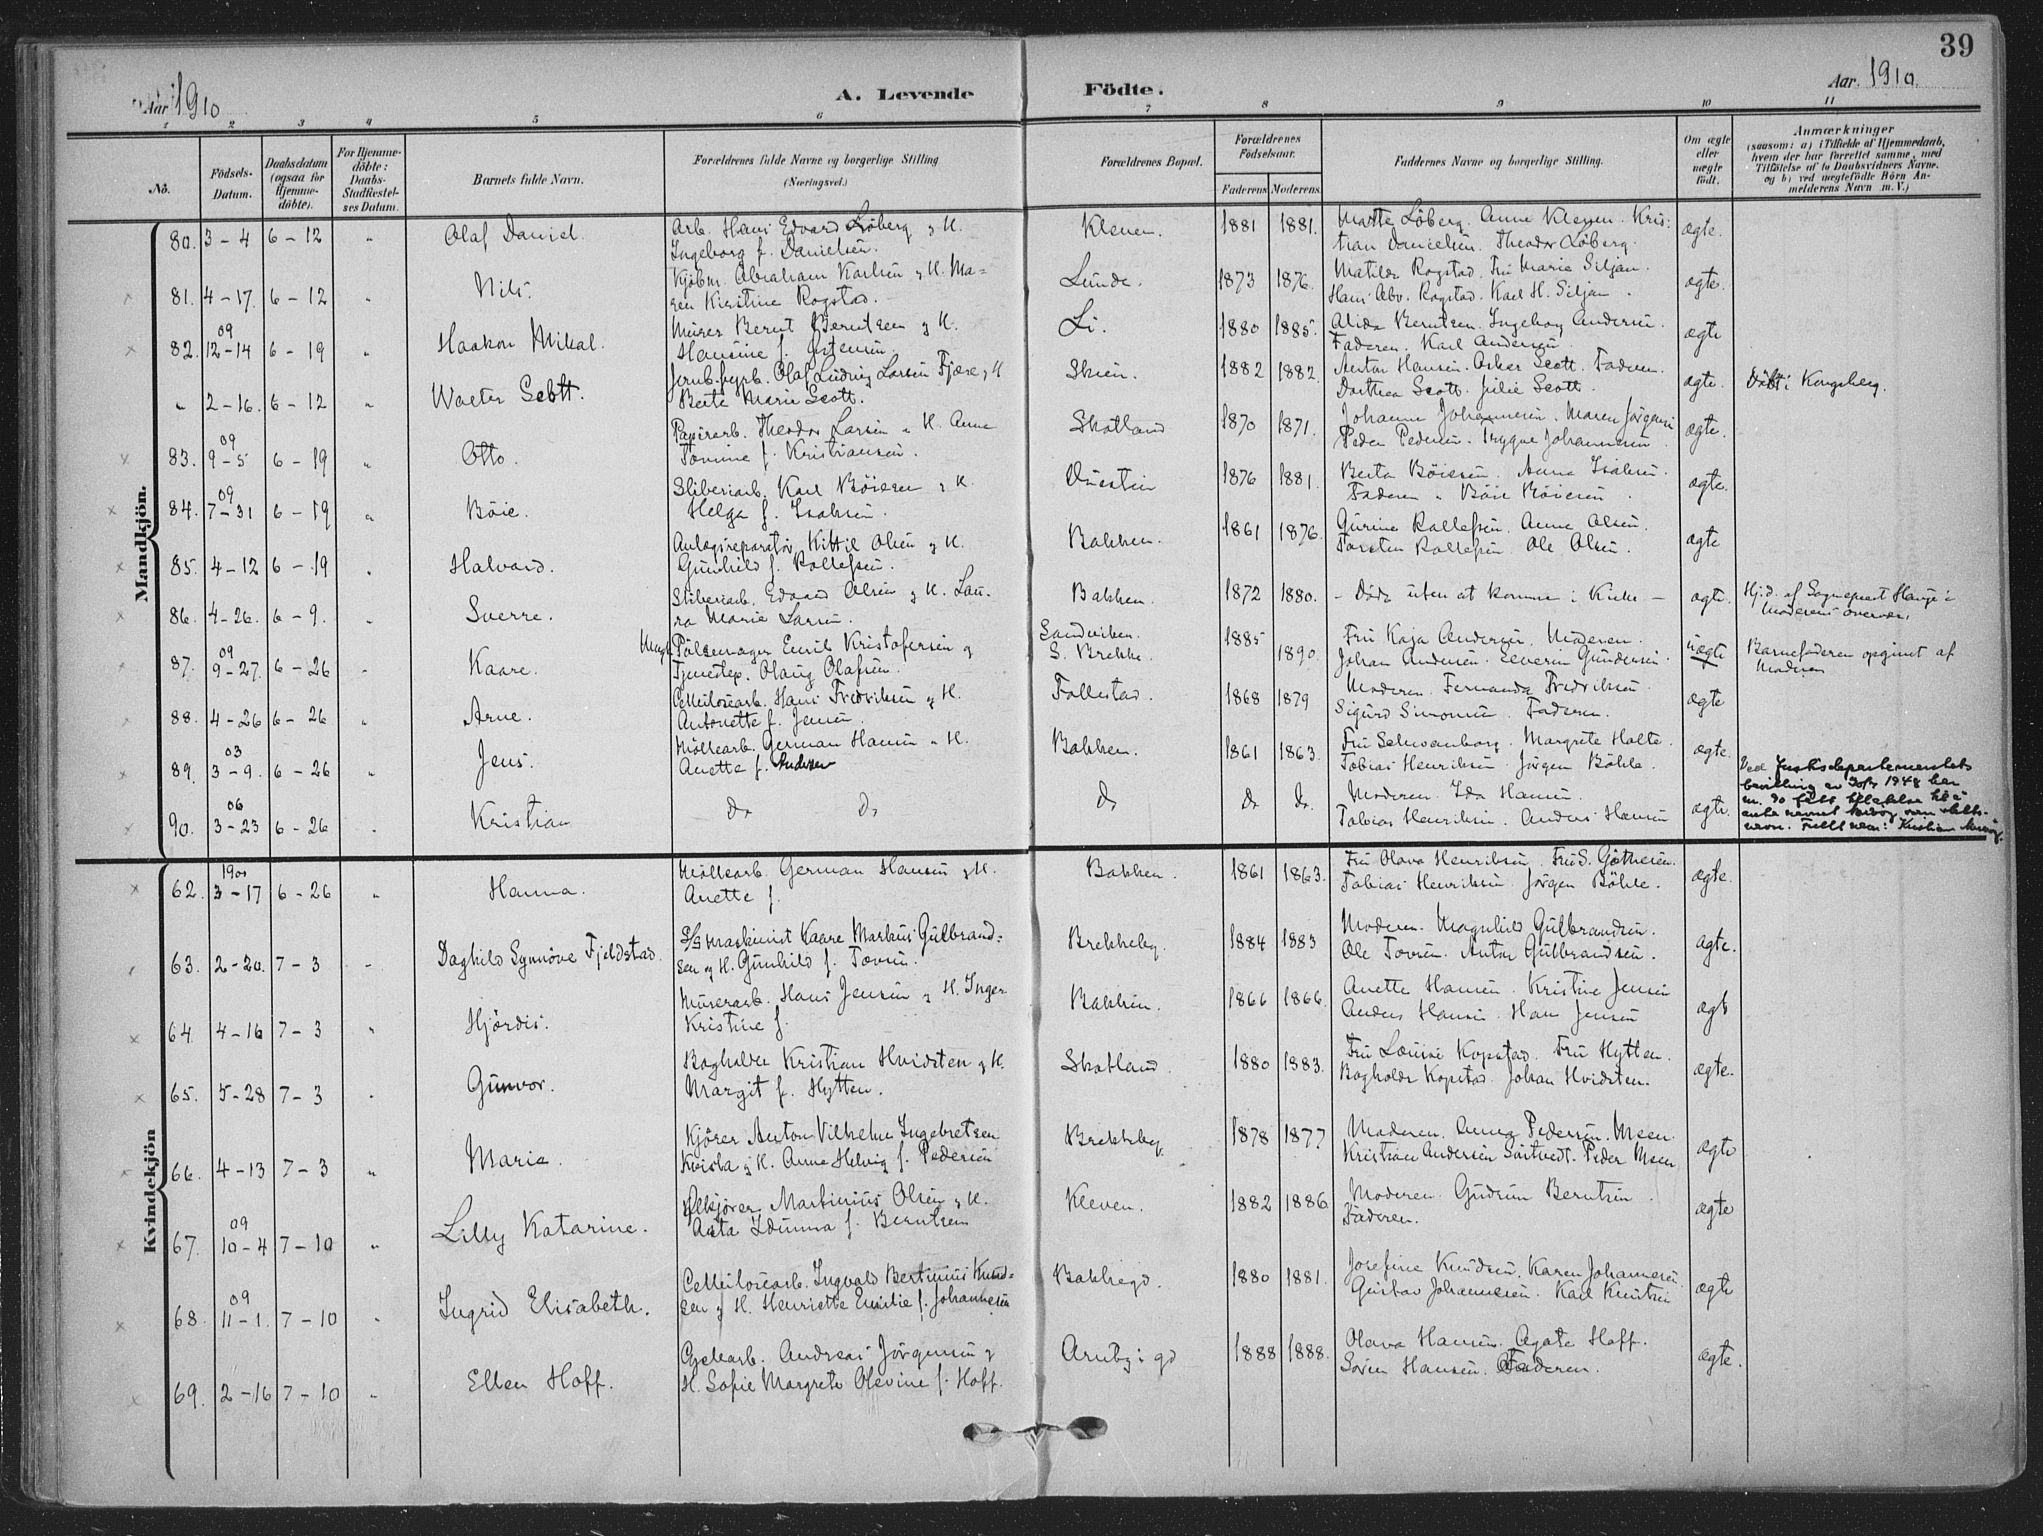 39
Aar 1910
A. Levende
Födte.
Aar. 1910.
1 2 3 4 5 6 7 8 9 10 11
No.
Födsels-
Datum.
Daabsdatum
(ogsaa for
Hjemme-
döbte).
For Hjemme-
döbte:
Daabs-
Stadfæstel-
ses Datum.
Barnets fulde Navn.
Forældrenes fulde Navne og borgerlige Stilling
(Næringsvei.)
Forældrenes Bopæl.
Forældrenes
Födselsaar.
Faderens
Moderens.
Faddernes Navne og borgerlige Stilling.
Om ægte
eller
uægte
födt.
Anmærkninger
(saasom: a) i Tilfælde af Hjemmedaab,
hvem der har forrettet samme, med
Tilföielse af to Daabsvidners Navne.
og b) ved uægtefödte Börn An-
melderens Navn m. V.)
Mandkjön.
80. 3-4 6-12 " Olaf Daniel. Arb. Hans Edvard Löberg & H. Kleven. 1881 1881. Marte Löberg. Anne Kleven. Kris- ægte.
Ingeborg f. Danielsen. tian Danielsen. Theodor Löberg.
81. 4-17. 6-12 " Nils. Kjöbm. Abraham Karlsen & H. Ma- Lunde. 1873 1876. Matilde Rogstad. Fru Marie Siljan. ægte.
ren Kirstine Rogstad. Hans Abr. Rogstad. Karl H. Siljan.
82. 09 12-14 6-19 " Haakon Mikal. Murer Bernt Berntsen & H. Li. 1880 1885. Alida Berntsen. Ingeborg Andersen. ægte
Hansine f. Faderen. Karl Andersen.
" 2-16. 6-12 " Walter Scott. Jernb.fyrb. Olaf Ludvig Larsen Fjære & H Skien. 1882 1882. Anton Hansen. Asker Scott. Faderen. ægte. Döbt i Kongsberg.
Berte Marie Scott. Dorthea Scott. Julie Scott.
83. 09 9-5 6-19 " Otto. Papirarb. Theodor Larsen & H. Anne Skotland 1870 1871. Johanne Johannesen. Maren Jörgensen ægte.
Tomine f. Kristiansen. Peder Pedersen. Trygve Johannesen
84. 09 7-31 6-19 " Böie. Sliberiarb. Karl Böiesen & H. 1876 1881. Berta Böiesen. Anna Isaksen. ægte.
Helga f. Isaksen. Faderen. Böie Böiesen.
85. 4-12 6-19 " Halvard. Anlægsreparatör Kittil Olsen & H. Bakken. 1861 1876. Gurine Rollefsen. Anne Olsen. ægte
Gunhild f. Rollefsen. Torsten Rollefsen. Ole Olsen.
86. 4-26. 6-9. " Sverre. Sliberiarb. Edvard Olsen & H. Lau- Bakken. 1872 1880. - Döde uten at komme i Kirke - ægte. Hj.d. af Sogneprest Hauge i
ra Marie Larsen. Moderens overvær.
87. 09 9-27. 6-26 " Kaare. Ungk. Pölsemager Emil Kristofersen & Sandviken. 1885 Fru Kaja Andersen. Moderen. uægte Barnefaderen opgivet af
Tjenestep. Olaug Olafsen. S. Brekke. 1890. Johan Andersen. Severin Gundersen. Moderen
88. 4-26 6-26 " Arne. Cellulosearb. Hans Fredriksen & H. Follestad. 1868 1879 Moderen. Fernanda Fredriksen. ægte
Antonette f. Jensen. Sigurd Simonsen. Faderen.
89. 03 3-9. 6-26 " Jens. Möllearb. German Hansen & H. Bakken. 1861 1863. Fru Schwanborg. Margrete Holte. ægte.
Anette f. Andersen Tobias Henriksen. Jörgen Böhle.
90. 06 3-23 6-26 " Kristian do do do do do. Moderen. Ida Hansen. ægte. Ved Justisdepartementets
Tobias Henriksen. Anders Hansen bevilling av 1948 har
navn. Fullt navn: Kristian
Kvindekjön
62. 1900 3-17 6-26 " Hanna. Möllearb. German Hansen & H. Bakken. 1861 1863. Fru Olava Henriksen. Fru S. Göthesen. ægte.
Anette f. Tobias Henriksen. Jörgen Böhle.
63. 2-20. 7-3 " Daghild Synnöve Fjeldstad. S/S Maskinist Kaare Markus Gulbrand- Brekkeby. 1884 1883 Moderen. Magnhild Gulbrandsen. ægte.
sen & H. Gunhild f. Tovsen. Ole Tovsen. Anton Gulbrandsen.
64. 4-16 7-3 " Hjördis. Murerarb. Hans Jensen & H. Inger Bakken. 1866 1866. Anette Hansen. Kristine Jensen ægt
Kristine f. Anders Hansen. Hans Jensen
65. 5-28 7-3 " Gunvor. Bogholder Kristian Hvidsten & H. Skotland 1880 1883. Fru Louise Kopstad. Fru Hytten. ægte.
Margit f. Hytten. Bogholder Kopstad. Johan Hvidsten.
66. 4-13 7-3 " Marie. Kjörer Anton Vilhelm Ingebretsen Brekkeby 1878 1877 Moderen. Anna Pedersen. Meen. ægte
Kvisla & H. Anne Helvig f. Pedersen Kristian Andersen Sortvedt. Peder Meen
67. 09 10-4 7-10 " Lilly Katarine. Ölkjörer Martinius Olsen & H. Kleven. 1882 1886 Moderen. Gudrun Berntsen. ægte
Asta Idunna f. Berntsen Faderen.
68. 09 11-1. 7-10 " Ingrid Elisabeth. Cellulosearb. Ingvald Bertinius Knud- Bakkegd. 1880 1881. Josefine Knudsen. Karen Johannesen. ægte
sen & H. Henriette Emilie f. Johannesen Gustav Johannesen. Karl Knutsen
69. 2-16 7-10 " Ellen Hoff. Andreas Jörgensen & Arnby gd 1888 1888. Olava Hansen. Agate Hoff. ægte.
H. Sofie Margrete Olevine f. Hoff. Sören Hansen. Faderen.